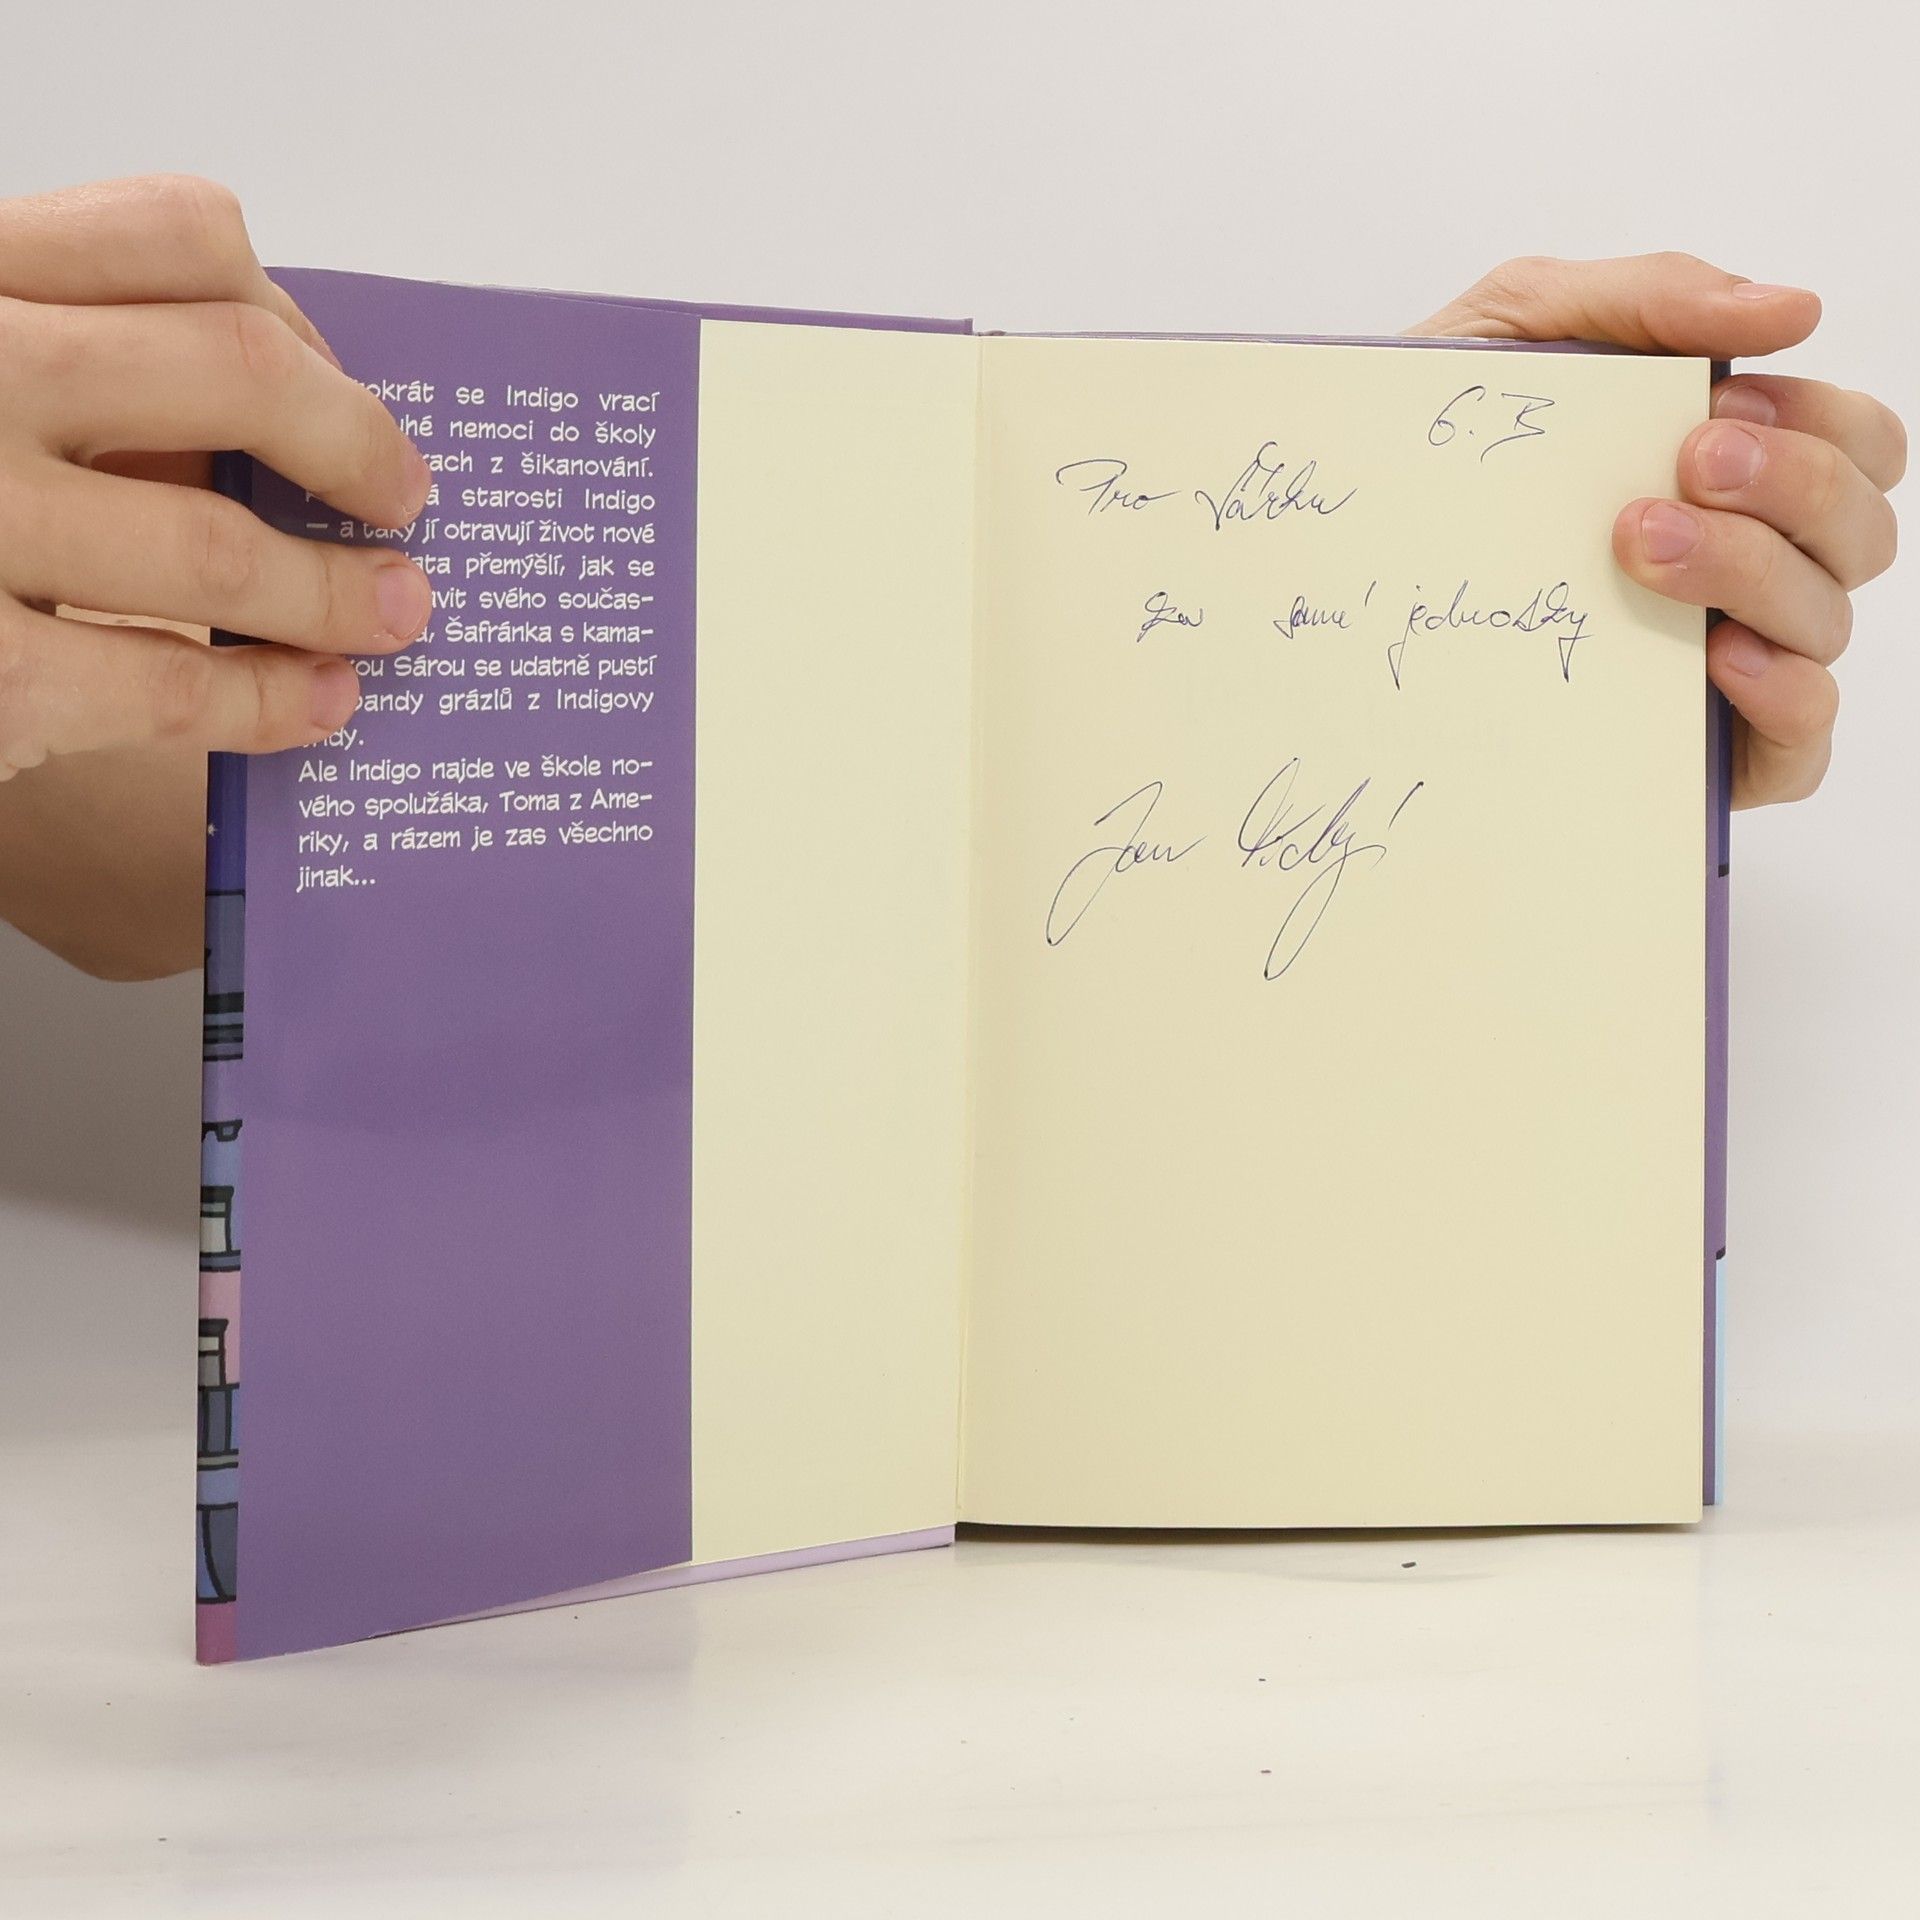 okrát se Indigo vrací
uhé nemoci do školy
rach z šikanování.
á starosti Indigo
— a taky jí otravují život nové
ata přemýšlí, jak se
avit svého součas-
Šafránka s kama-
ou Sárou se udatně pustí
bandy grázlů z Indigovy
ndy.
Ale Indigo najde ve škole no-
vého spolužáka, Toma z Ame-
riky, a rázem je zas všechno
jinak...
6. B
Pro Šárku
za samé jednotky
Jan